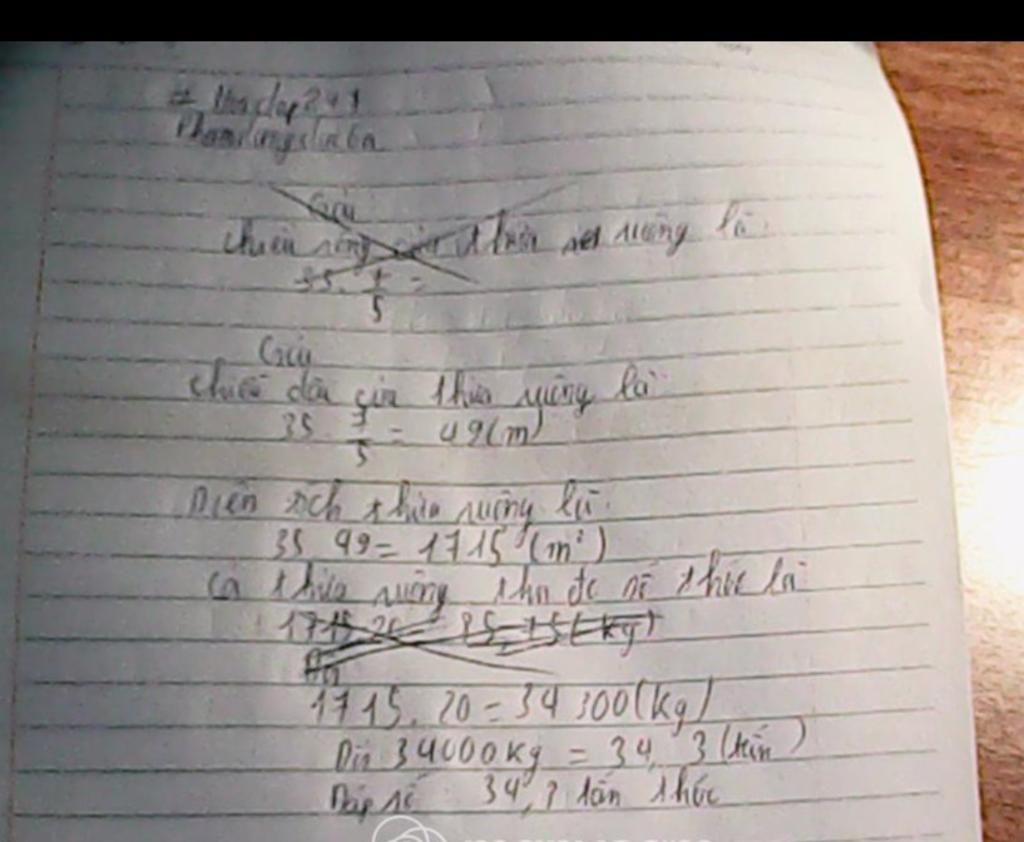 Giải
chiều rộng của thửa ruộng là:
35. 1/5 =
Giải
chiều dài của thửa ruộng là:
35. 7/5 = 49(m)
Diện tích thửa ruộng là:
35 49 = 1715 (m²)
cả thửa ruộng thu đc số thóc là
1715 20 = (kg)
1715. 20 = 34 300 (kg)
34000kg = 34, 3 (tấn)
Đáp số 34, 3 tấn thóc